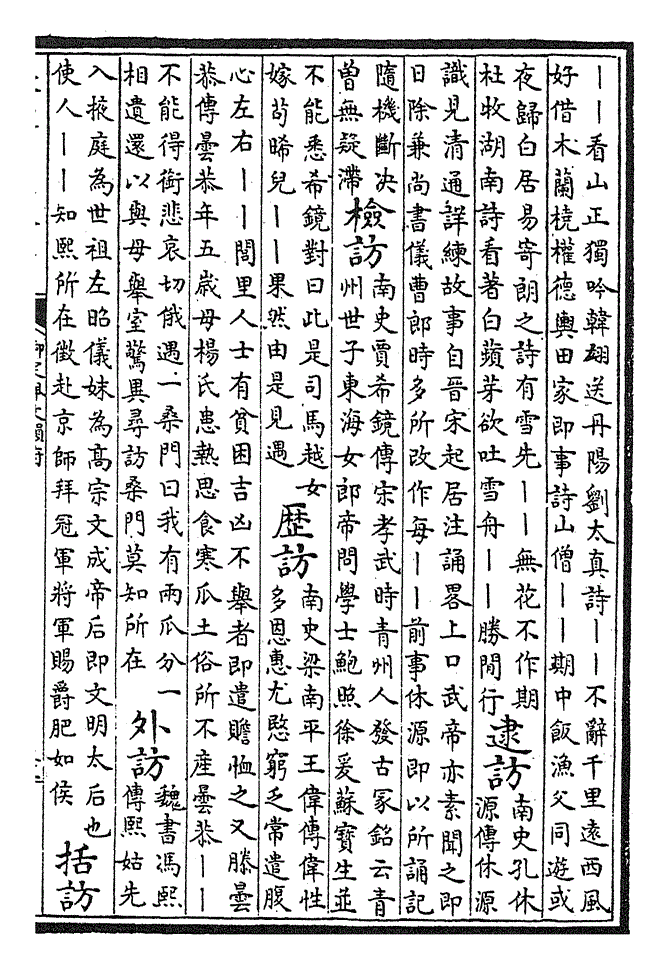 ——看山正獨吟韓翃送丹陽劉太真詩——不辭千里遠西風
好借木蘭橈權德輿田家即事詩山僧——期中飯漁父同遊或
夜歸白居易寄朗之詩有雪先——無花不作期
杜牧湖南詩看著白蘋芽欲吐雪舟——勝閒行
逮訪
南史孔休
源傳休源
識見清通詳練故事自晉宋起居注誦畧上口武帝亦素聞之即
日除兼尚書儀曹郎時多所改作每——前事休源即以所誦記
隨機斷决
曽無疑滯
檢訪
南史賈希鏡傳宋孝武時青州人發古冢銘云青
州世子東海女郎帝問學士鮑照徐爰蘇寶生並
不能悉希鏡對曰此是司馬越女
嫁茍晞兒——果然由是見遇
歴訪
南史梁南平王偉傳偉性
多恩惠尤愍窮乏常遣腹
心左右——閭里人士有貧困吉凶不舉者即遣贍恤之又滕曇
恭傳曇恭年五歳母楊氏患熱思食寒瓜土俗所不產曇恭——
不能得銜悲哀切俄遇一桑門曰我有兩瓜分一
相遺還以與母舉室驚異尋訪桑門莫知所在
外訪
魏書馮熙
傳熙姑先
入掖庭為世祖左昭儀妹為高宗文成帝后即文明太后也
使人——知熙所在徵赴京師拜冠軍將軍賜爵肥如侯
括訪